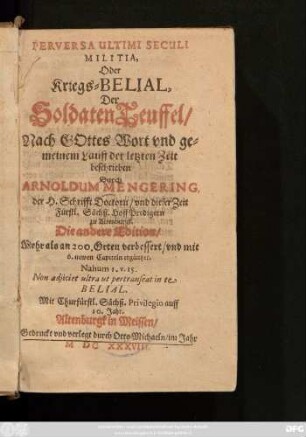 PERVERSA ULTIMI SECULI
MILITIA,
Oder
Kriegs-BELIAL,
Der
Soldaten Teuffel/
Nach GOttes Wort vnd ge-
meinem Lauff der letzten Zeit
beschrieben
Durch
ARNOLDUM MENGERING,
der H. Schrifft Doctorn/ vnd dieser Zeit
Fürstl. Sächß. Hoff Predigern
zu Altenburgk.
Die andere Edition/
Mehr als an 200. Orten verbessert/ vnd mit
6. newen Capiteln ergäntzet.
Nahum 1. v. 15.
Non adjiciet ultra ut pertranseat in te
BELIAL.
Mit Churfürstl. Sächß. Privilegio auff
10. Jahr.
Altenburgk in Meissen/
Gedruckt vnd verlegt durch Otto Michaeln/ im Jahr
M DC XXXVIII.